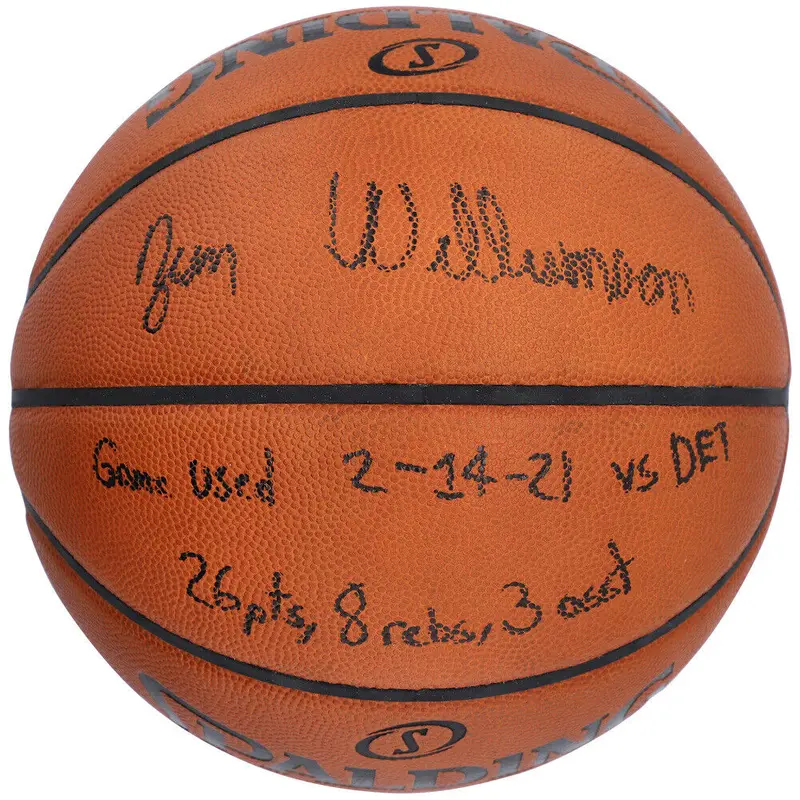 SPALDING
S
Zion Williamson
Game used 2-14-21 vs DET
26 pts, 8 rebs, 3 asst
S
SPALDING